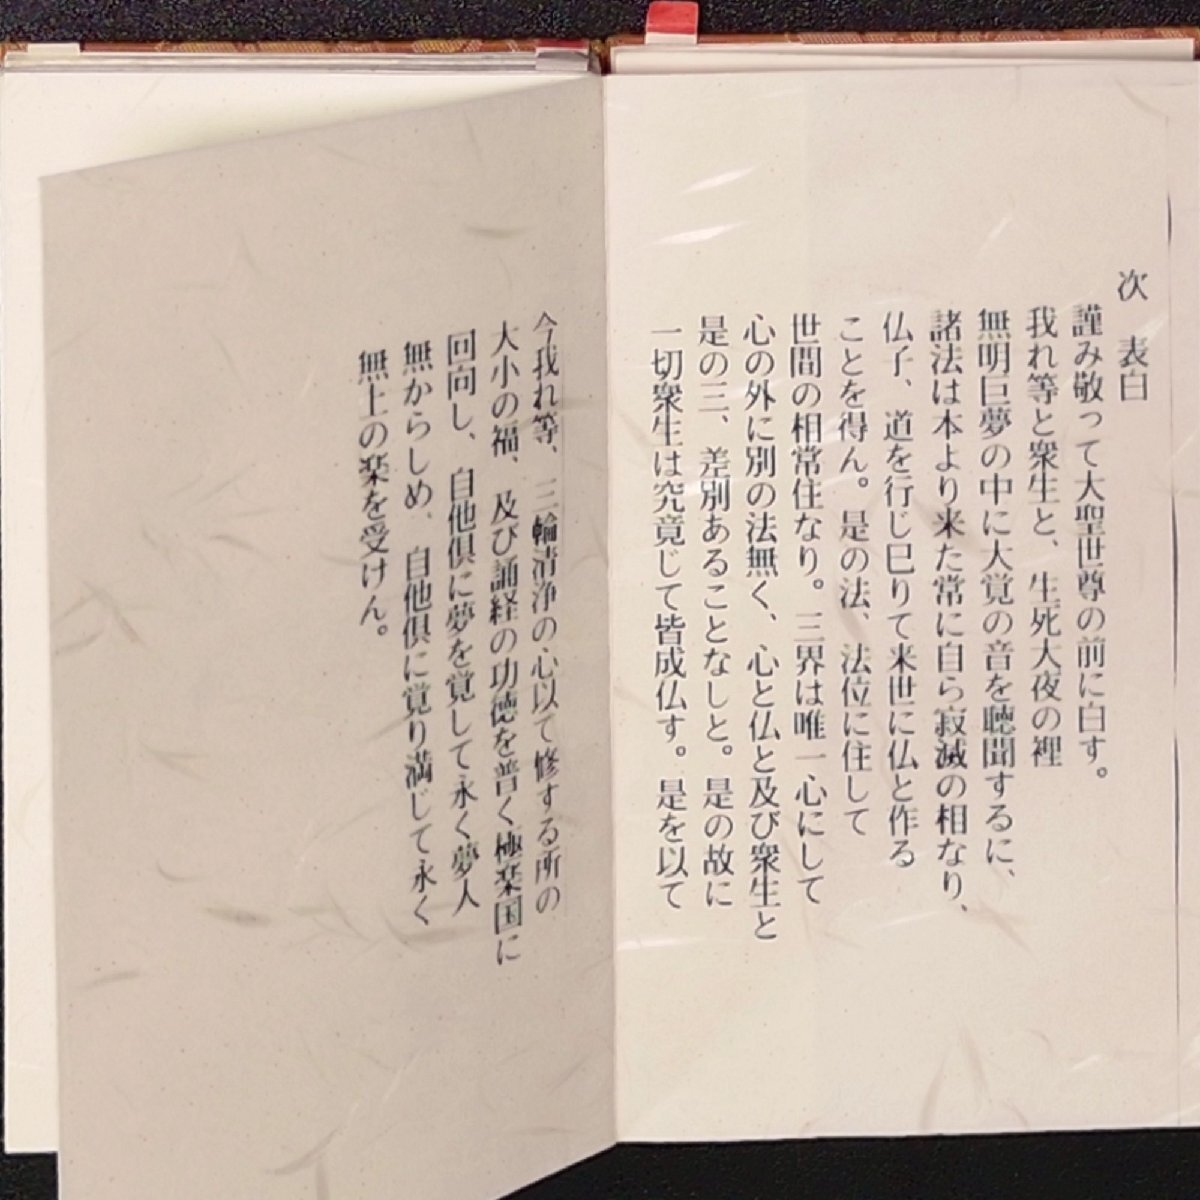 次 表白
謹み敬って大聖世尊の前に白す。
我れ等と衆生と、生死大夜の裡
無明巨夢の中に大覚の音を聴聞するに、
諸法は本より来た常に自ら寂滅の相なり、
仏子、道を行じ巳りて来世に仏と作る
ことを得ん。是の法、法位に住して
世間の相常住なり。三界は唯一心にして
心の外に別の法無く、心と仏と及び衆生と
是の三、差別あることなしと。是の故に
一切衆生は究竟じて皆成仏す。是を以て
今我れ等、三輪清浄の心以て修する所の
大小の福、及び誦経の功徳を普く極楽国に
回向し、自他倶に夢を覚して永く夢人
無からしめ、自他倶に覚り満じて永く
無上の楽を受けん。